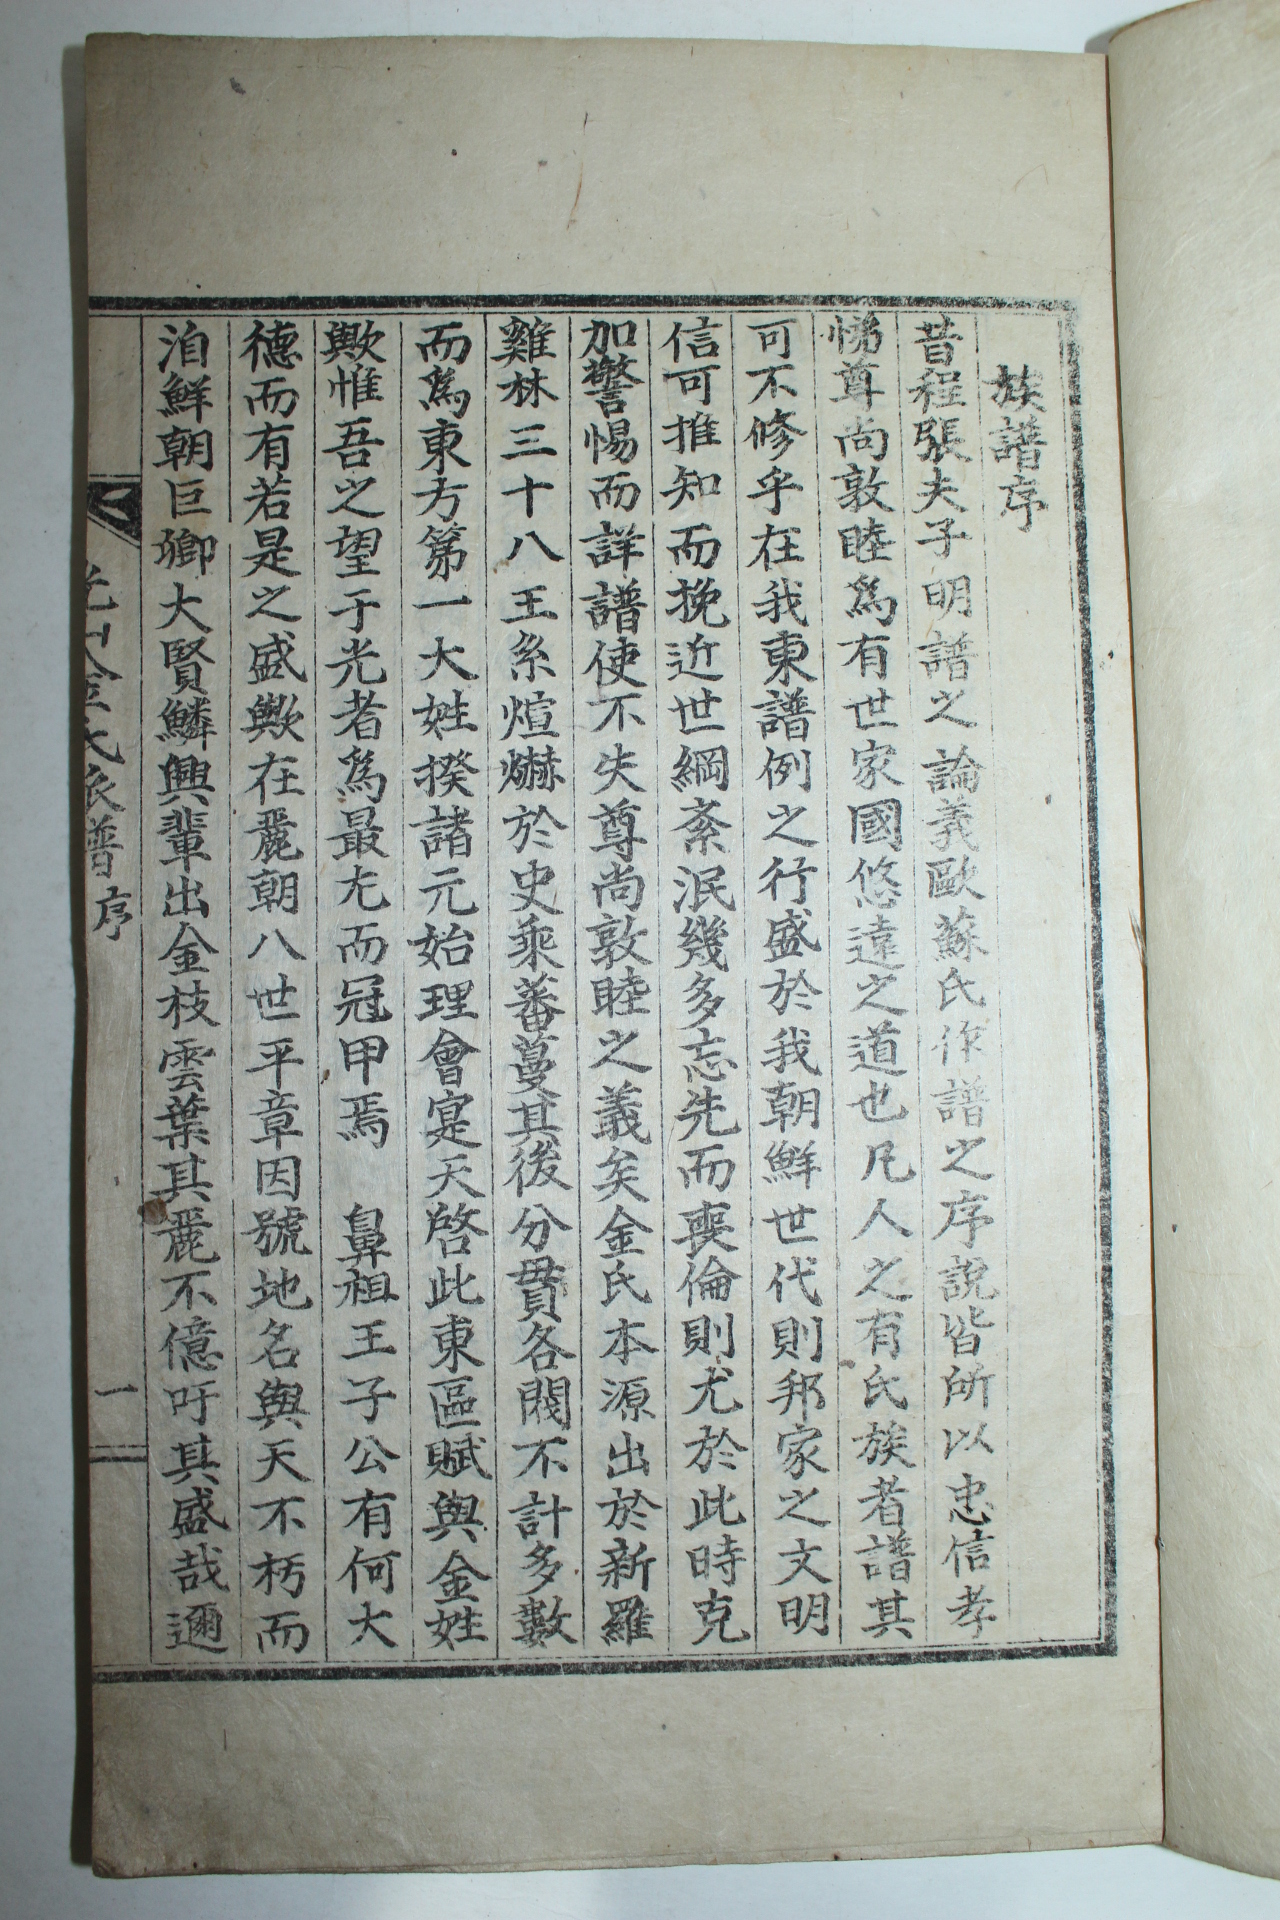 族譜序
昔程張夫子明譜之論義歐蘇氏作譜之序說皆所以忠信孝
悌尊尚敦睦爲有世家國悠遠之道也凡人之有氏族者譜其
可不修乎在我東譜例之行盛於我朝鮮世代則邦家之文明
信可推知而挽近世綱紊泯幾多忘先而喪倫則尤於此時克
加警惕而詳譜使不失尊尚敦睦之義矣金氏本源出於新羅
雞林三十八王系煊爀於史乘蕃蔓其後分貫各閥不計多數
而爲東方第一大姓揆諸元始理會寔天啓此東區賦與金姓
歟惟吾之望于光者爲最尤而冠甲焉 鼻祖王子公有何大
德而有若是之盛歟在麗朝八世平章因號地名與天不朽而
洎鮮朝巨卿大賢鱗興輩出金枝雲葉其麗不億吁其盛哉邇
光山金氏派譜 序 一